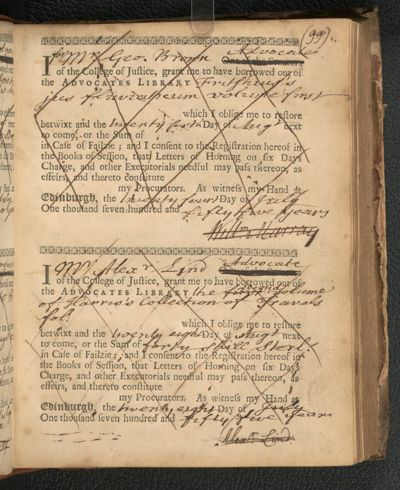 99
I Mr Geo: Brown Advocate
One of the Senators
of the College of Justice, grant me to have borrowed out of
the ADVOCATES LIBRARY
jus volume first
which I oblige me to restore
betwixt and the twenty fourth Day of Augt next
to come, or the Sum of
in Case of Failzie; and I consent to the Registration hereof in
the Books of Session, that Letters of Horning on six Days
Charge, and other Executorials needful may pass thereon, as
effeirs, and thereto constitute
my Procurators. As witness my Hand at
Edinburgh, the twenty four Day of July
One thousand seven hundred and fifty five years
Murray
I Mr Alexr Lind Advocate
of the College of Justice, grant me to have borrowed out of
the ADVOCATES LIBRARY the first volume
of Harris's Collection of Travals
fol:
which I oblige me to restore
betwixt and the twenty eight Day of Augt next
to come, or the Sum of forty shill Sterl
in Case of Failzie; and I consent to the Registration hereof in
the Books of Session, that Letters of Horning on six Days
Charge, and other Executorials needful may pass thereon, as
effeirs, and thereto constitute
my Procurators. As witness my Hand at
Edinburgh, the twenty eight Day of July
One thousand seven hundred and fifty five years
Alexr Lind